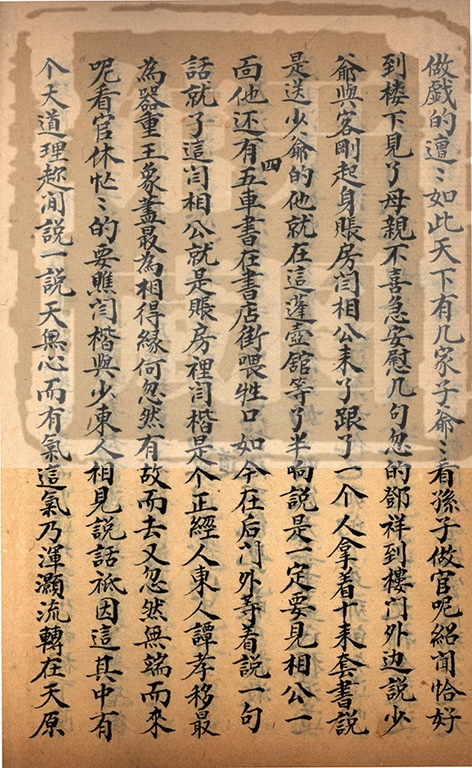 做戲的遭〻如此天下有几家子爺〻看孫子做官呢紹聞恰好
到楼下見了母親不喜急安慰几句忽的鄧祥到樓門外边説少
爺與客剛起身賬房闫相公来了跟了一个人拿着十来套書説
是送少爺的他就在這蓬壺舘等了半晌説是一定要見相公一
面他还有四五車書在書店街喂牲口如今在后门外等着説一句
話就了這闫相公就是賬房裡闫楷是个正經人東人譚孝移最
為器重王象蓋最為相得緣何忽然有故而去又忽然無端而來
呢看官休忙〻的要瞧闫楷與少東人相見説話祗因這其中有
个天道理趂闲説一説天無心而有氣這氣乃渾灝流轉在天原